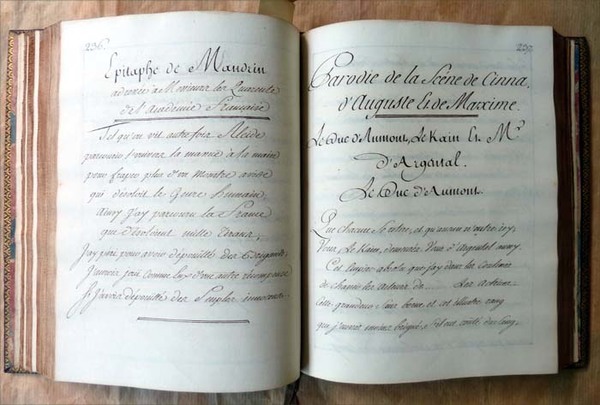 236.
Epitaphe de Mandrin
adressée a Messieurs les Quarente
de l'Académie Française
Tel qu'on vit autre fois Alcide
parcourir l'univers la massue a la main
pour fraper plus d'un Monstre avide
qui désoloit le Genre humain,
Ainsy j'ay parcouru la France
que désoloient mille Tirans,
J'ay péri pour avoir dépouillé des
J'aurois joui comme Eux d'un autre
Si j'avois dépouillé des Peuples innocens.
239.
Parodie de la Scène de Cinna
d'Auguste Et de Maxime.
Le Duc d'Aumont, Le Kain Et Mr.
D'Argental.
Le Duc d'Aumont.
Que chacun se retire, et qu'aucun n'entre icy,
Vous, Le Kain, demeurés, Vous d'Argental aussy.
Cet Empire absolu que j'ay dans les coulisses
de chasser les Acteurs, de ...... Les Actrices
Cette grandeur sans borne, et cet illustre rang